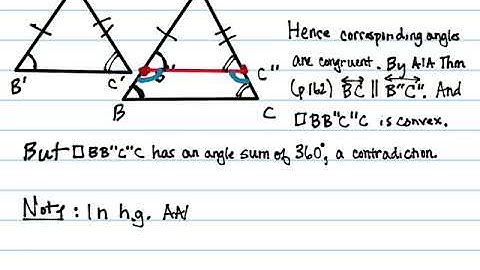 Hence corresponding angles
are congruent. By AIA Thm
(p162) BC || B"C". And
□BB"C"C is convex.
B'
C'
B"
C"
B
C
But □BB"C"C has an angle sum of 360°, a contradiction.
Note: In h.g. AA